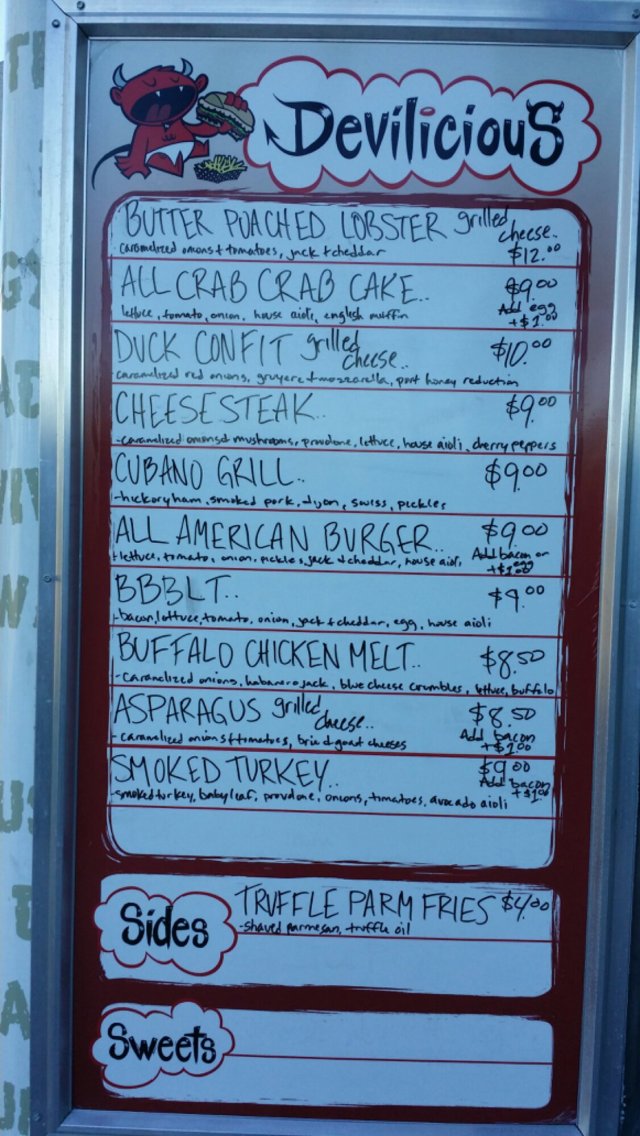 Devilicious
BUTTER POACHED LOBSTER grilled cheese.. $12.00
caramelized onions + tomatoes, jack + cheddar
ALL CRAB CRAB CAKE.. $9.00
lettuce, tomato, onion, house aioli, english muffin
Add egg +$1.00
DUCK CONFIT grilled cheese.. $10.00
-caramelized red onions, gruyere + mozzarella, port honey reduction
CHEESESTEAK.. $9.00
-caramelized onions & mushrooms, provolone, lettuce, house aioli, cherry peppers
CUBANO GRILL.. $9.00
-hickory ham, smoked pork, dijon, swiss, pickles
ALL AMERICAN BURGER.. $9.00
-lettuce, tomato, onion, pickles, jack + cheddar, house aioli
Add bacon or egg +$1.00
BBBLT.. $9.00
-bacon, lettuce, tomato, onion, jack + cheddar, egg, house aioli
BUFFALO CHICKEN MELT.. $8.50
-caramelized onions, habanero jack, blue cheese crumbles, lettuce, buffalo
ASPARAGUS grilled cheese.. $8.50
-caramelized onions + tomatoes, brie + goat cheeses
Add bacon +$1.00
SMOKED TURKEY.. $9.00
-smoked turkey, baby leaf, provolone, onions, tomatoes, avocado aioli
Add bacon +$1.00
Sides
TRUFFLE PARM FRIES $4.00
-shaved parmesan, truffle oil
Sweets